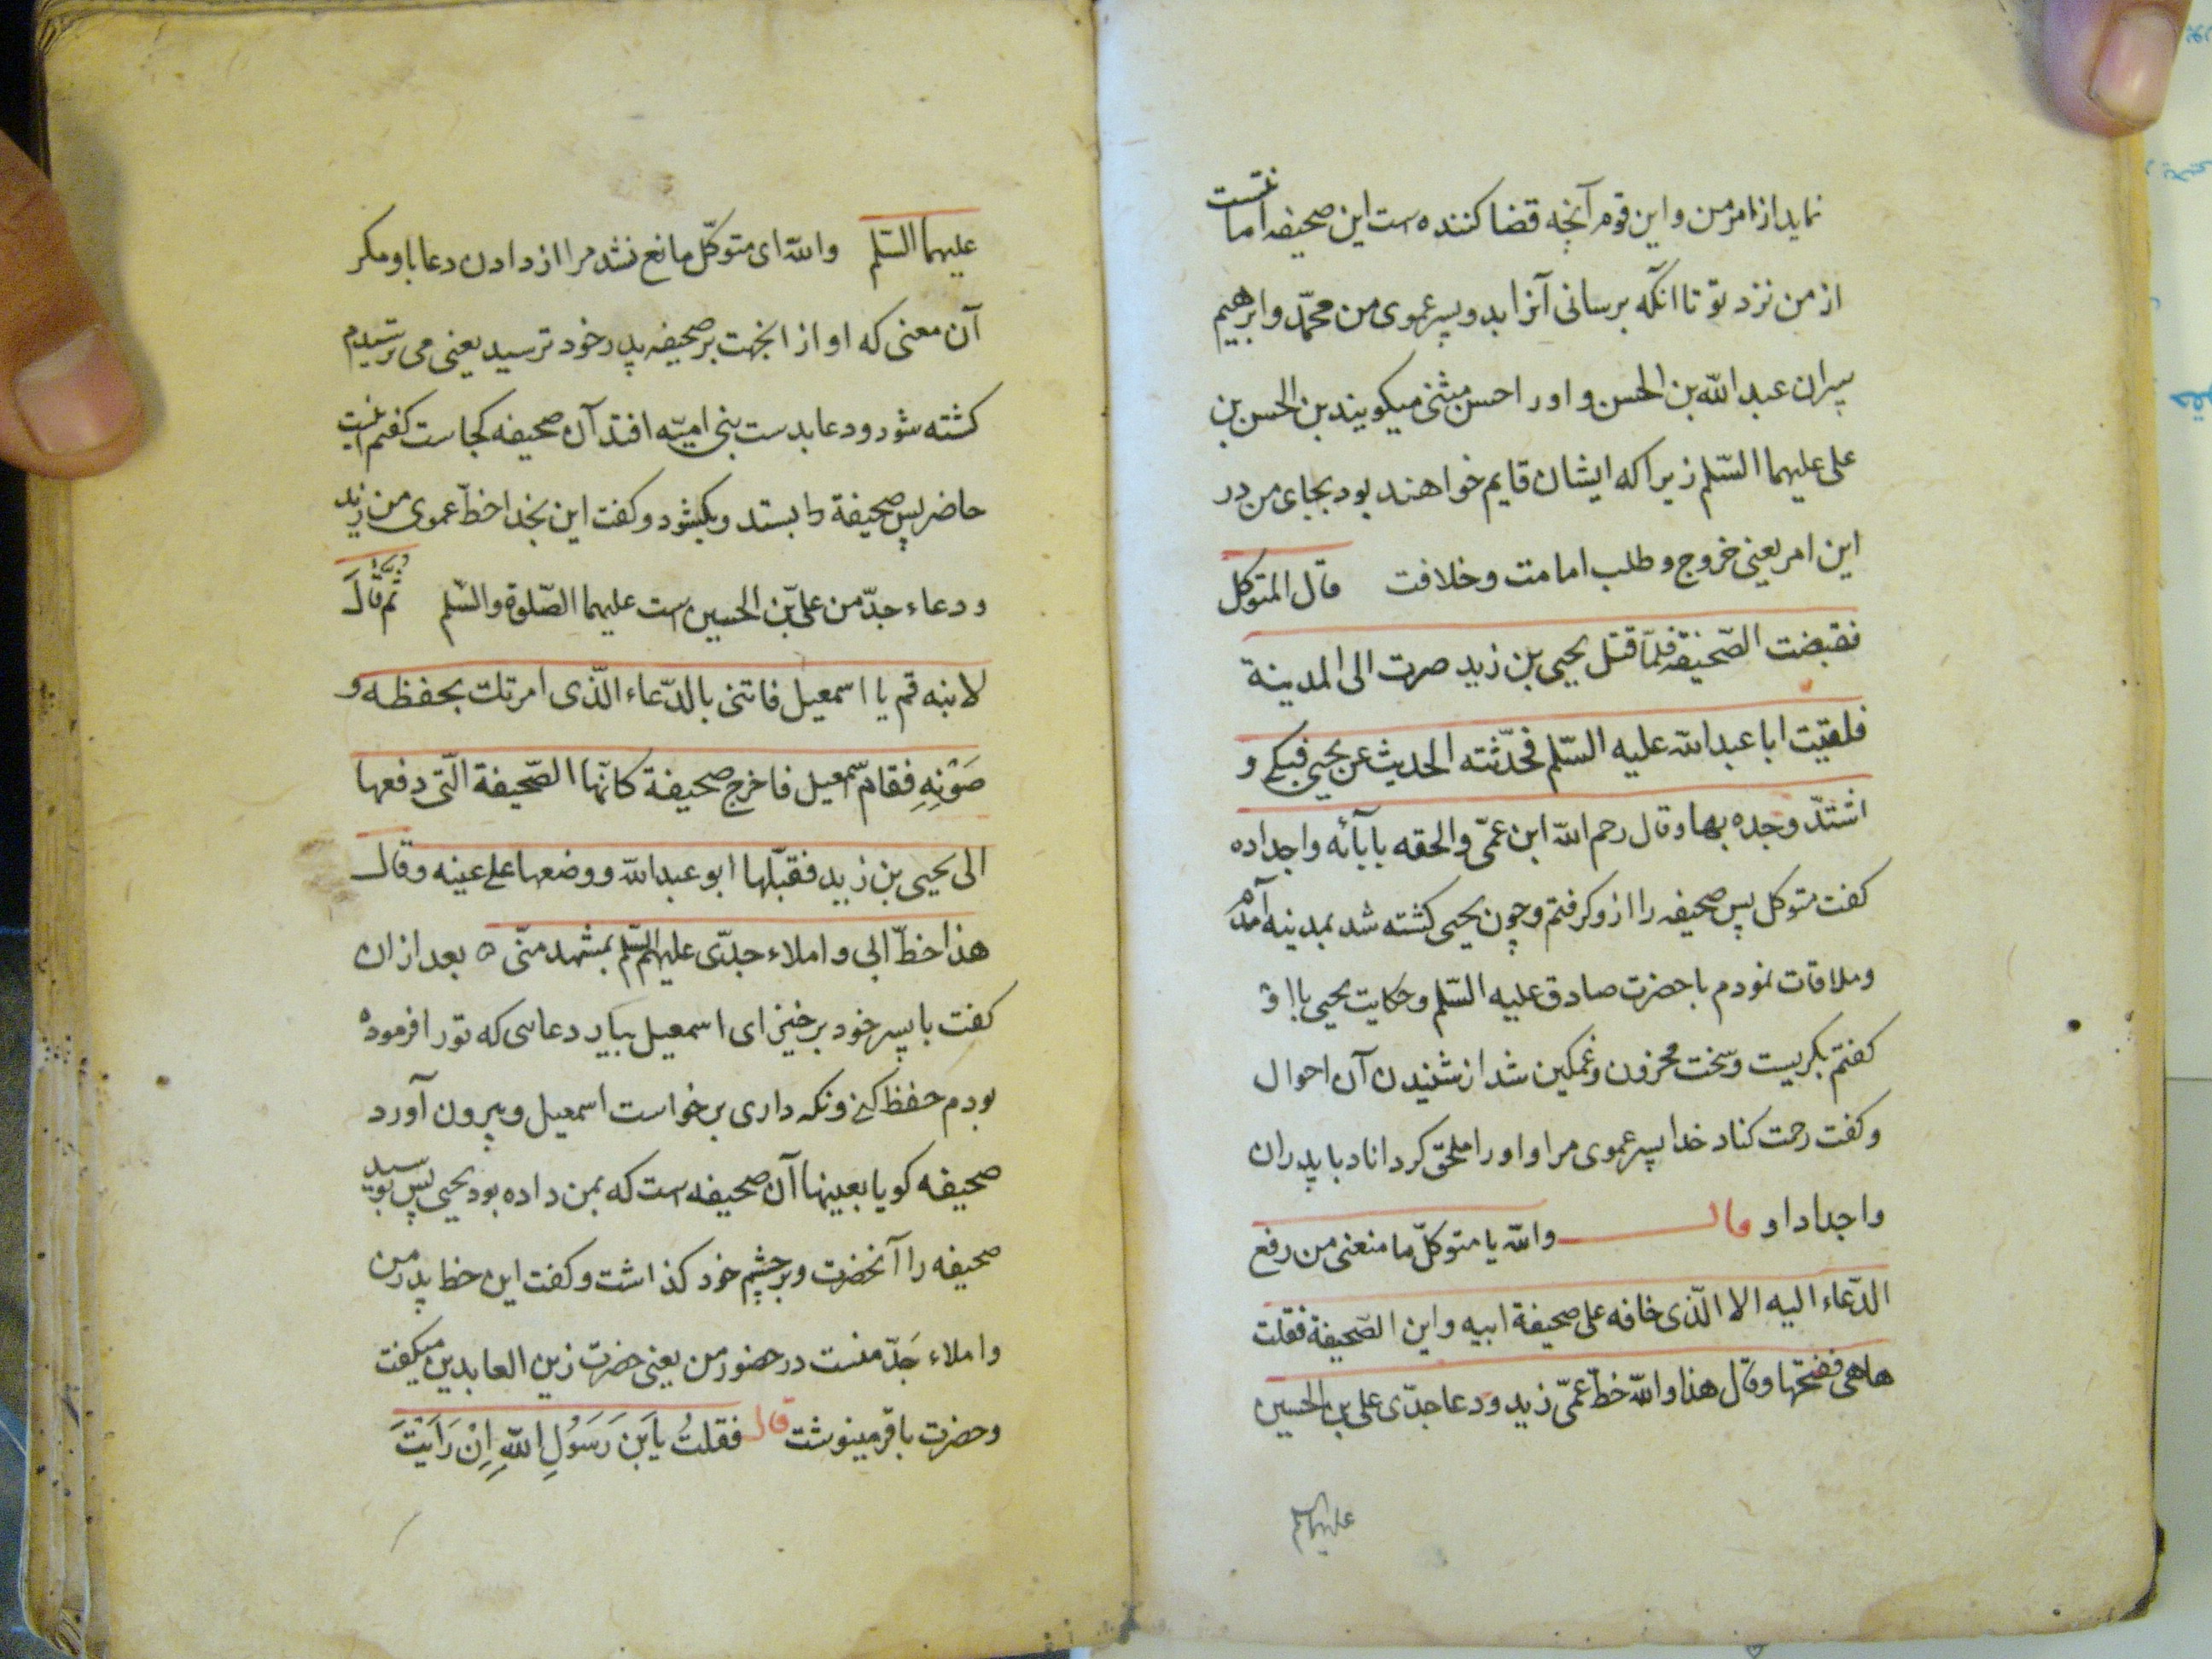 نماید از امر من و این قوم آنچه قضا کننده است این صحیفه امانتست
از من نزد تو تا آنکه برسانی آنرا بدو پسر عموی من محمّد و ابرهیم
پسران عبد الله بن الحسن و او را حسن مثنی میکویند بن الحسن بن
علی علیهما السّلم زیرا که ایشان قایم خواهند بود بجای من در
این امر یعنی خروج و طلب امامت و خلافت قال المتوکل
فقبضت الصّحیفة فلمّا قتل یحیی بن زید صرت الی المدینة
فلقیت ابا عبد الله علیه السّلم فحدّثته الحدیث عن یحیی فبکی و
اشتدّ وجده بها وقال رحم الله ابن عمّی و الحقه بابآئه واجداده
کفت متوکل پس صحیفه را ازو کرفتم و چون یحیی کشته شد بمدینه آمدم
و ملاقات نمودم با حضرت صادق علیه السّلم و حکایت یحیی با او
کفتم بکریست و سخت محزون و غمکین شد از شنیدن آن احوال
و کفت رحمت کناد خدا پسر عموی مرا و او را ملحق کرداناد با پدران
و اجداد او قال والله یا متوکلّ ما منعنی من رفع
الدّعاء الیه الا الّذی خافه علی صحیفة ابیه و این الصّحیفة فقلت
ها هی ففتحها وقال هذا والله خطّ عمّی زید و دعا جدّی علی بن الحسین
علیهما السلم
علیهما السّلم والله ای متوکّل مانع نشد مرا از دادن دعا باو مکر
آن معنی که او از انجهت بر صحیفه پدر خود ترسید یعنی می ترسیدم
کشته شود و دعا بدست بنی امیّه افتد آن صحیفه کجاست کفتم اینست
حاضر پس صحیفة را بستد و بکشود و کفت این بخدا خطّ عموی من زید
و دعاء جدّ من علی بن الحسین است علیهما الصّلوة والسّلم ثمّ قال
لابنه قم یا اسمعیل فاتنی بالدّعاء الّذی امرتک بحفظه و
صَوْنِهِ فقام اسمعیل فاخرج صحیفة کانّها الصّحیفة الّتی دفعها
الی یحیی بن زید فقبّلها ابو عبد الله ووضعها علی عینه وقال
هذا خطّ ابی و املاء جدّی علیهم السّلم بمشهد منّی ه بعد از ان
کفت با پسر خود برخیز ای اسمعیل بیار دعایی که تو را فرموده
بودم حفظ کنی و نکه داری برخواست اسمعیل و بیرون آورد
صحیفه کویا بعینها آن صحیفه است که بمن داده بود یحیی پس بوسید
صحیفه را آنحضرت و بر چشم خود کذاشت و کفت این خط پدر من
و املاء جَدّ منست در حضور من یعنی حضرت زین العابدین میکفت
و حضرت باقر مینوشت قال فقلتُ یَابَن رَسَوْلِ اللّهِ اِنْ رَاَیْتَ